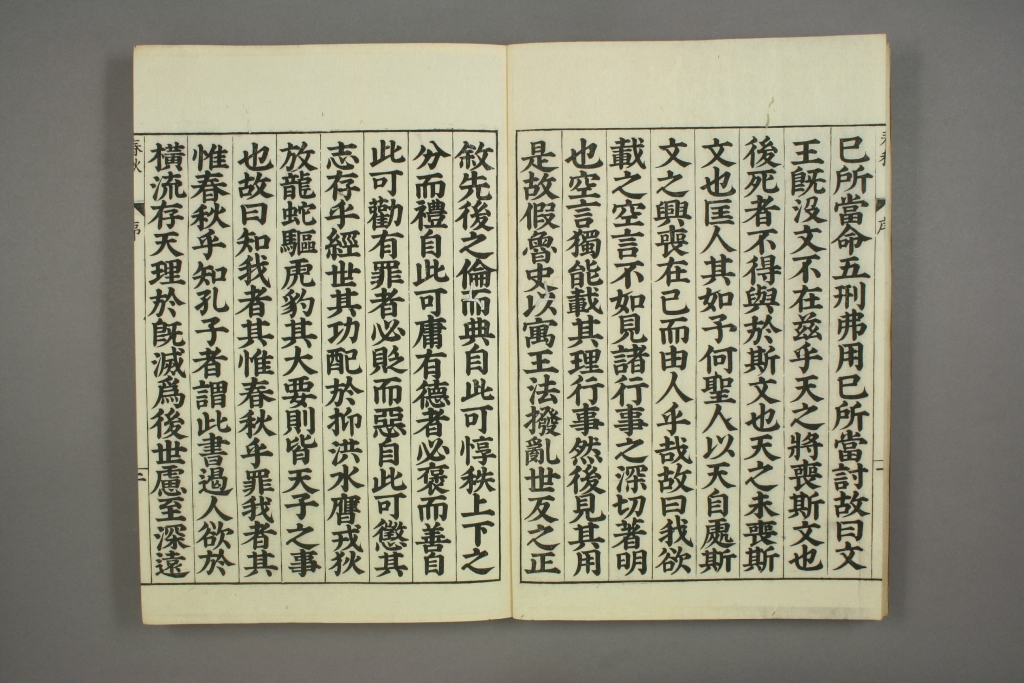 巳所當命五刑弗用巳所當討故曰文
王旣没文不在茲乎天之將喪斯文也
後死者不得與於斯文也天之未喪斯
文也匡人其如予何聖人以天自處斯
文之興喪在己而由人乎哉故曰我欲
載之空言不如見諸行事之深切著明
也空言獨能載其理行事然後見其用
是故假魯史以寓王法撥亂世反之正
敘先後之倫而典自此可惇秩上下之
分而禮自此可庸有德者必褒而善自
此可勸有罪者必貶而惡自此可懲其
志存乎經世其功配於抑洪水膺戎狄
放龍蛇驅虎豹其大要則皆天子之事
也故曰知我者其惟春秋乎罪我者其
惟春秋乎知孔子者謂此書遏人欲於
橫流存天理於旣滅爲後世慮至深遠
春秋
序
二